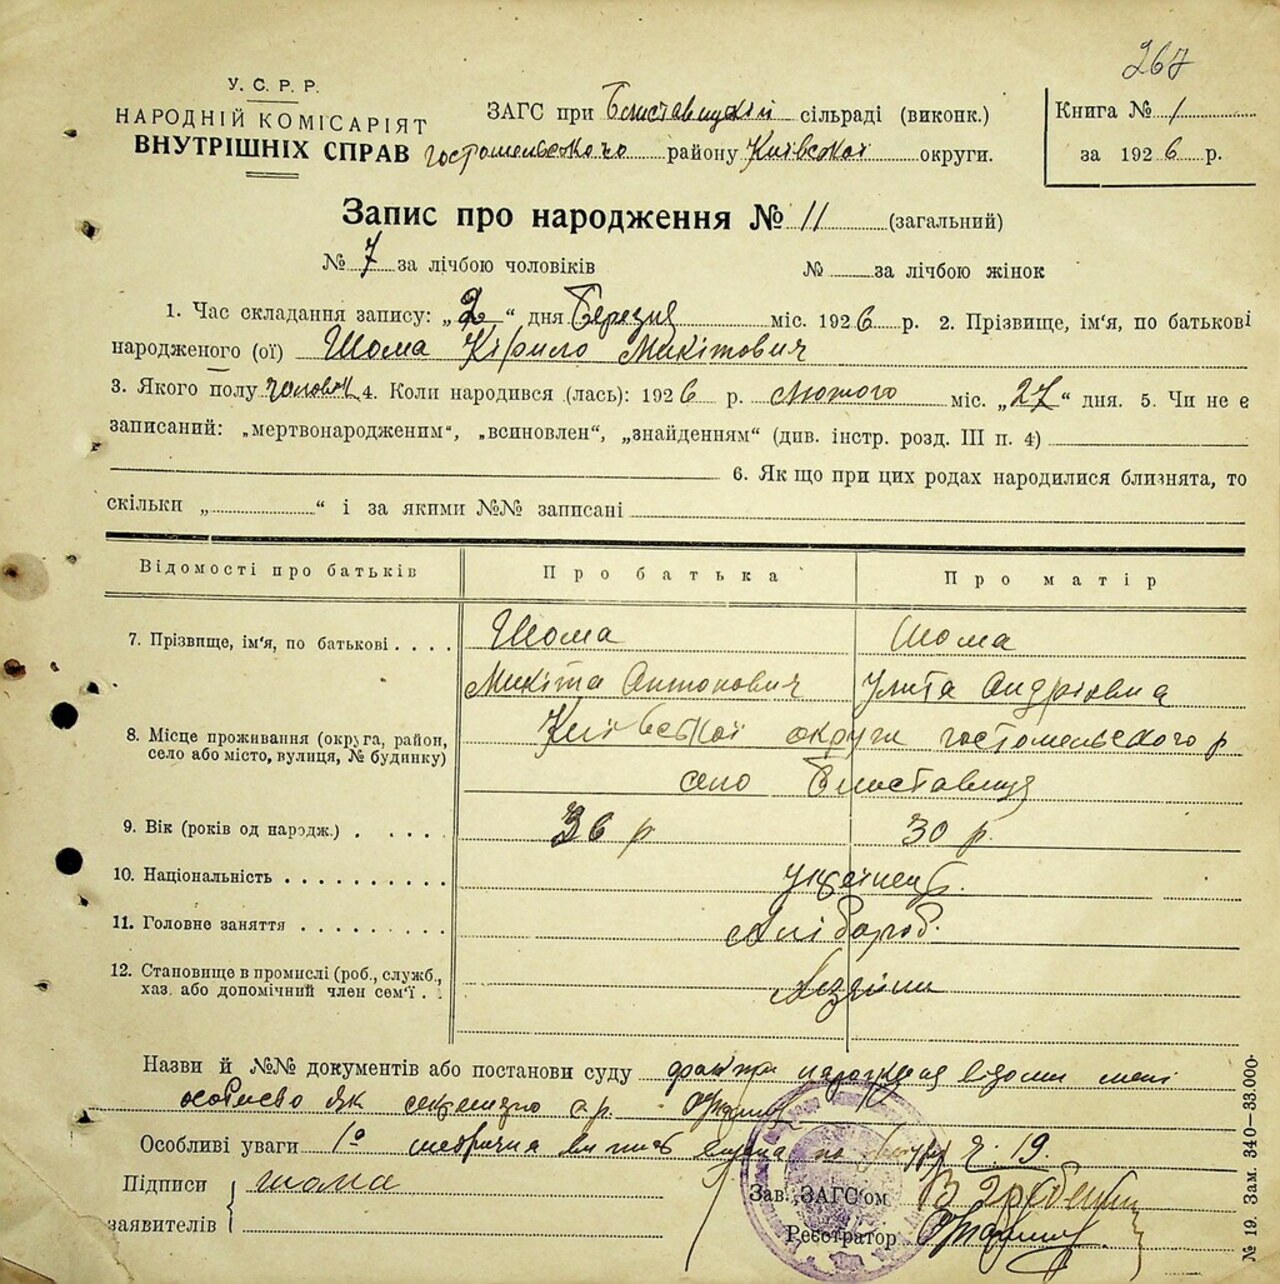 267
У. С. Р. Р.
НАРОДНІЙ КОМІСАРІЯТ
ВНУТРІШНІХ СПРАВ
ЗАГС при Блиставицкій сільраді (виконк.)
гостомельського району Київської округи.
Книга № 1
за 1926 р.
Запис про народження № 11 (загальний)
№ 7 за лічбою чоловіків № за лічбою жінок
1. Час складання запису: „2“ дня Березня міс. 1926 р. 2. Прізвище, ім'я, по батькові
народженого (ої) Шома Кірило Микітович
3. Якого полу чоловік 4. Коли народився (лась): 1926 р. Лютого міс. „27“ дня. 5. Чи не є
записаний: „мертвонародженим“, „всиновлен“, „знайденням“ (див. інстр. розд. III п. 4)
6. Як що при цих родах народилися близнята, то
скільки „ “ і за якими №№ записані
Відомості про батьків Про батька Про матір
7. Прізвище, ім'я, по батькові . . . . Шома Шома
Микіта Антонович Улита Андріївна
8. Місце проживання (округа, район, село або місто, вулиця, № будинку) Київської округи гостомельского р
село Блиставиця
9. Вік (років од народж.) . . . . . 36 р 30 р.
10. Національність . . . . . . . . . . українец.
11. Головне заняття . . . . . . . . . хлібороб.
12. Становище в промислі (роб., служб.,
хаз. або допомічний член сем'ї . .
Назви й №№ документів або постанови суду факти народження відоми мені
особисто як секретарю с.р.
Особливі уваги 1о метрична випись видана по 2. 19.
Підписи шома
заявителів
Зав. „ЗАГС'ом
Реєстратор
№ 19. Зам. 340—33.000.